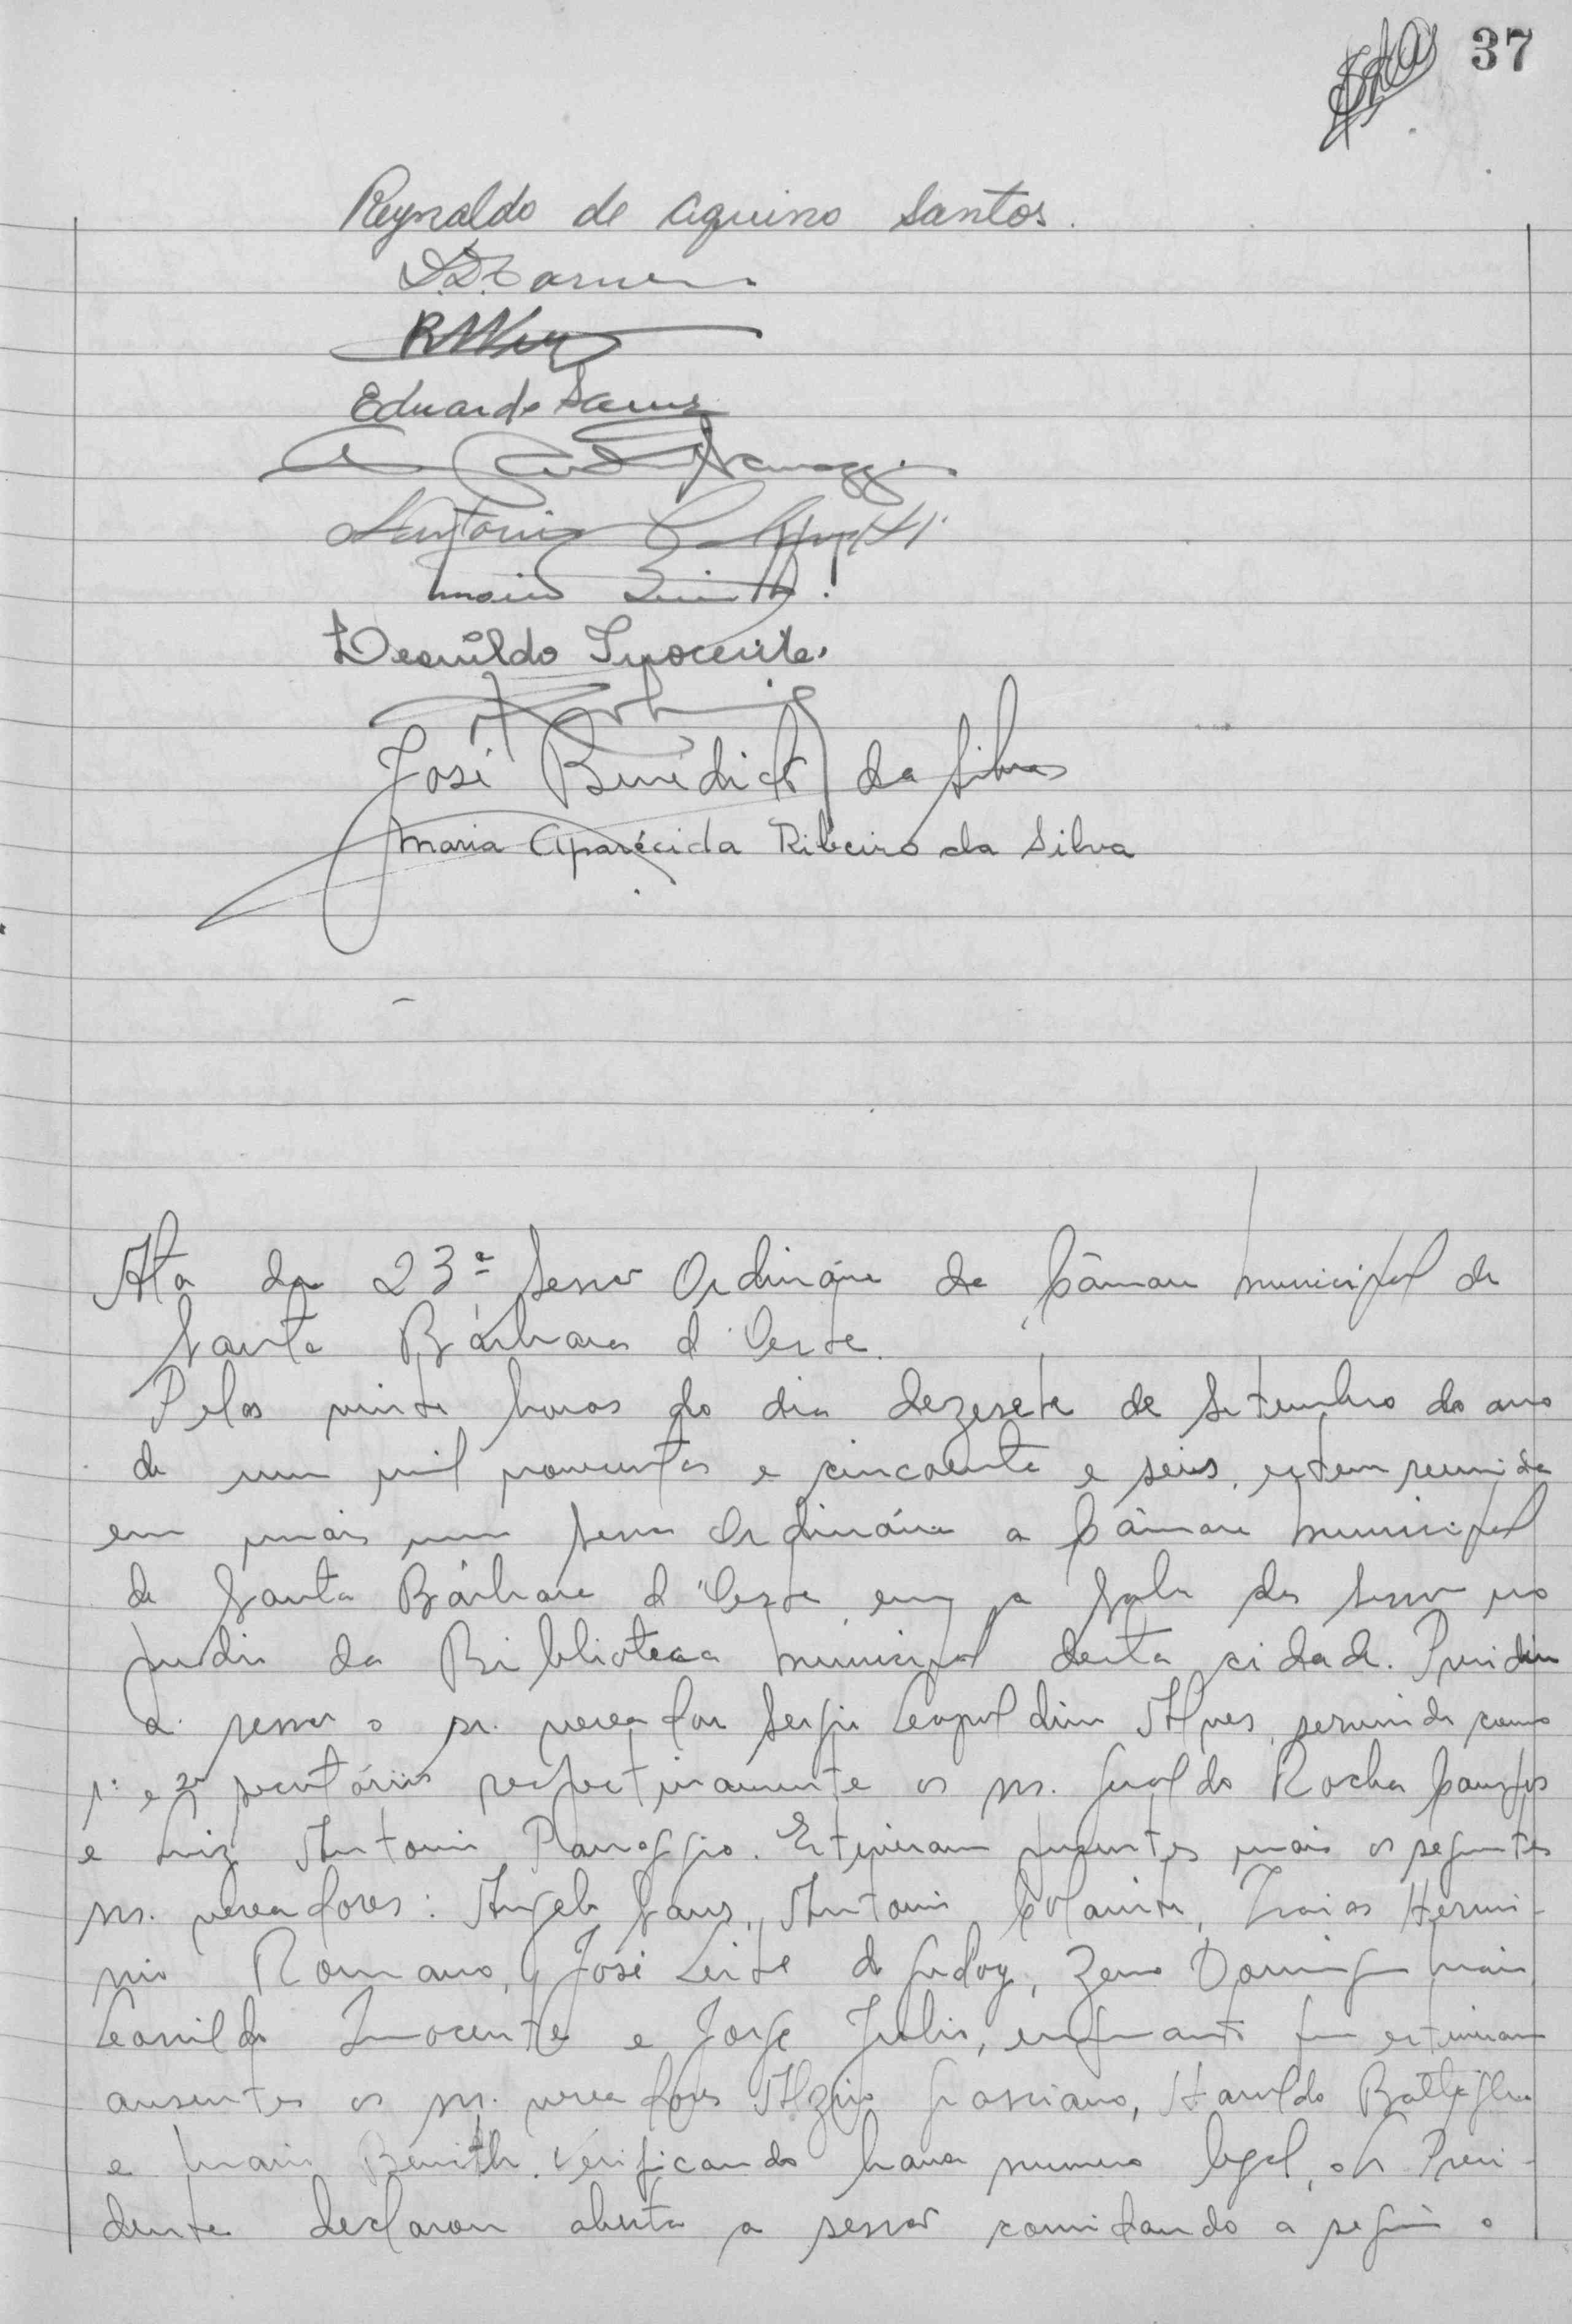 37
Reynaldo de Aquino Santos.
Eduardo Sans
Antonio
Mario
Leonildo Inocente.
José Benedicto da Silva
Maria Aparécida Ribeiro da Silva
Ata da 23ª Sessão Ordinária da Câmara Municipal de
Santa Bárbara d'Oeste.
Pelas vinte horas do dia dezesete de Setembro do ano
de um mil novecentos e cincoenta e seis, esteve reunida
em mais uma Sessão Ordinária a Câmara Municipal
de Santa Bárbara d'Oeste, em a Sala das Sessões no
prédio da Biblioteca Municipal desta cidade. Presidiu
a sessão o sr. vereador Sergio Leopoldino Alves, servindo como
1º e 2º secretários respectivamente os srs. Geraldo Rocha Campos
e Luiz Antonio Panaggio. Estiveram presentes mais os seguintes
srs. vereadores: Angelo Sans, Antonio, Izaias Hermi-
nio Romano, José Leite de Godoy, Zeno Domingos Maia,
Leonildo Inocente e Jorge Julio, enquanto que estiveram
ausentes os srs. vereadores Alziro Graciano, Haroldo Battaglia
e Mario. Verificando haver numero legal, o Sr. Presi-
dente declarou aberta a sessão convidando a seguir o